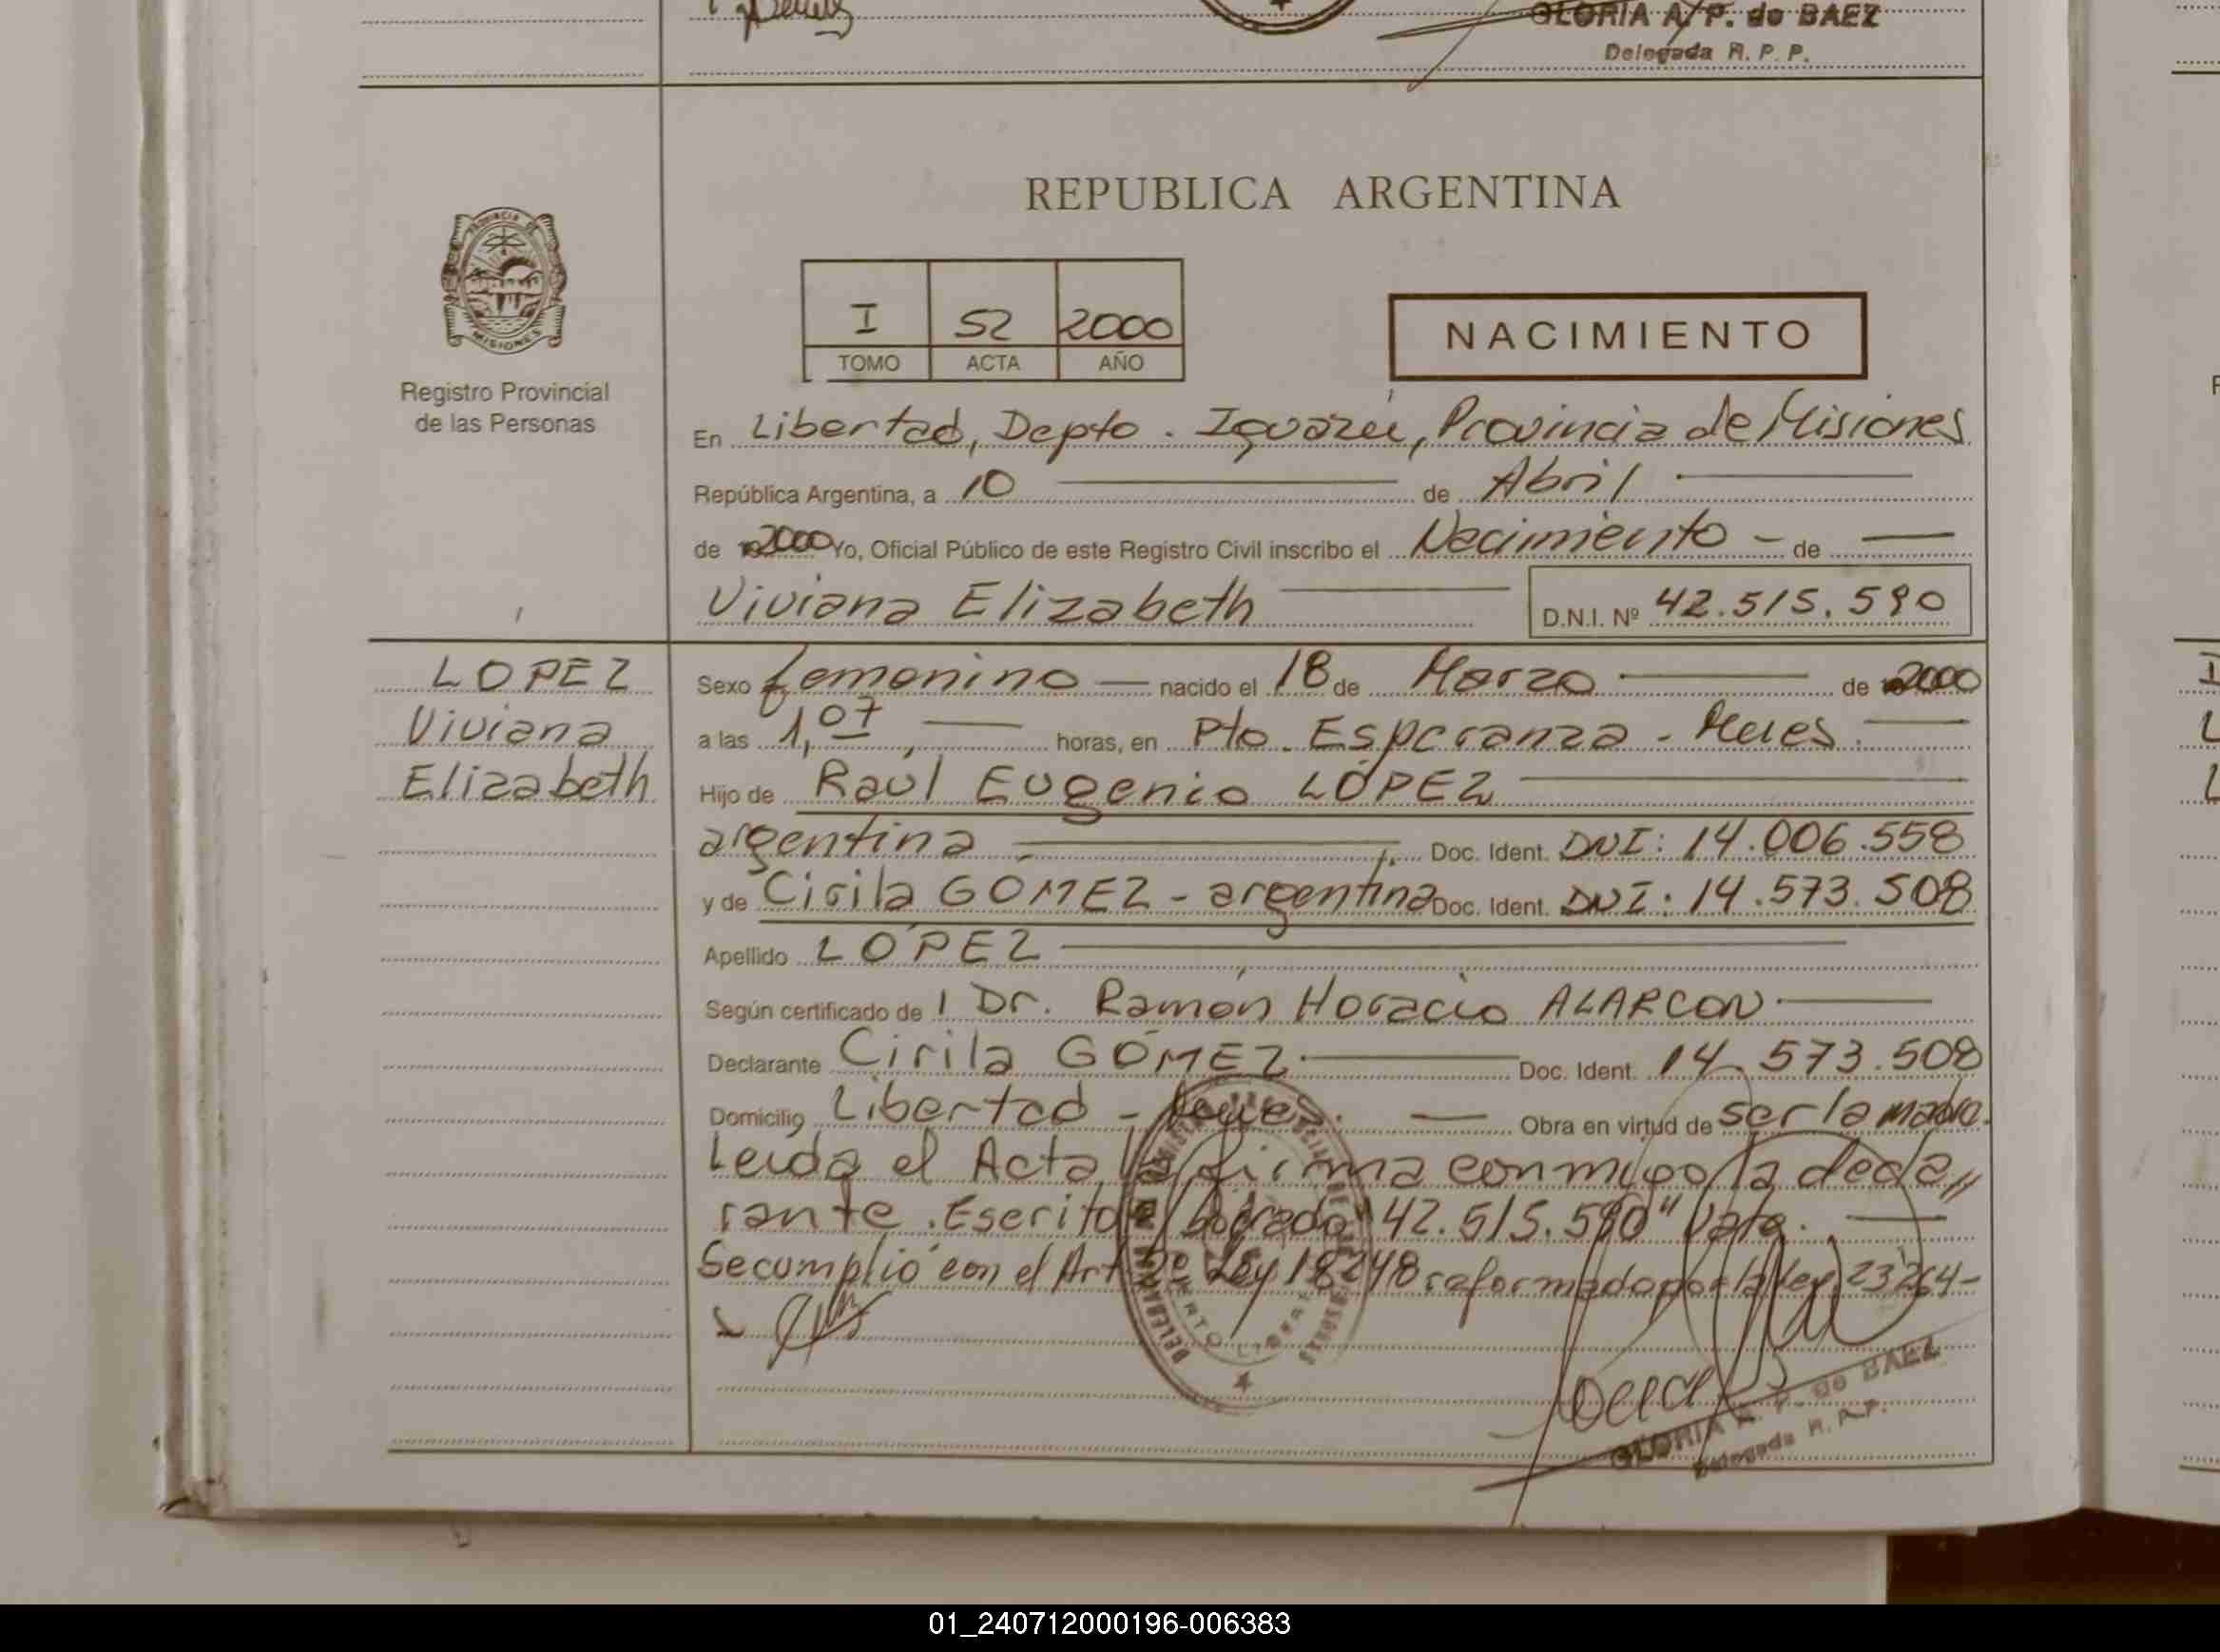 GLORIA A. P. de BAEZ
Delegada R. P. P.
REPUBLICA ARGENTINA
PROVINCIA DE
MISIONES
Registro Provincial
de las Personas
I 52 2000
TOMO ACTA AÑO
NACIMIENTO
En Libertad, Depto. Iguazú, Provincia de Misiones
República Argentina, a 10 de Abril
de 2000 Yo, Oficial Público de este Registro Civil inscribo el Nacimiento - de
Viviana Elizabeth D.N.I. Nº 42.515.590
LOPEZ
Viviana
Elizabeth
Sexo femenino nacido el 18 de Marzo de 2000
a las 1,07 horas, en Pto. Esperanza - Mnes.
Hijo de Raúl Eugenio LÓPEZ
argentina Doc. Ident. DNI: 14.006.558
y de Cirila GÓMEZ - argentina Doc. Ident. DNI: 14.573.508
Apellido LÓPEZ
Según certificado de l Dr. Ramón Horacio ALARCON
Declarante Cirila GÓMEZ Doc. Ident. 14.573.508
Domicilio Libertad - Mnes. Obra en virtud de ser la madre.
Leida el Acta, la firma conmigo la decla,,
rante. Escrito s/borrado "42.515.590" Vale.
Se cumplió con el Art Ley 18248 reformado por la Ley 23264-
GLORIA A. P. de BAEZ
Delegada R. P. P.
01_240712000196-006383